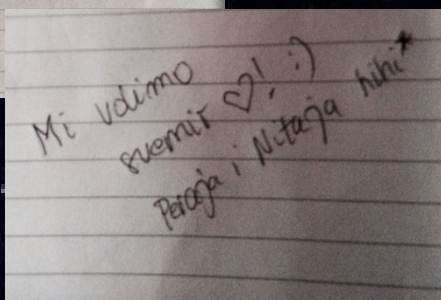 Mi volimo
svemir ♡! :)
Peraja i Nitaja hihi*